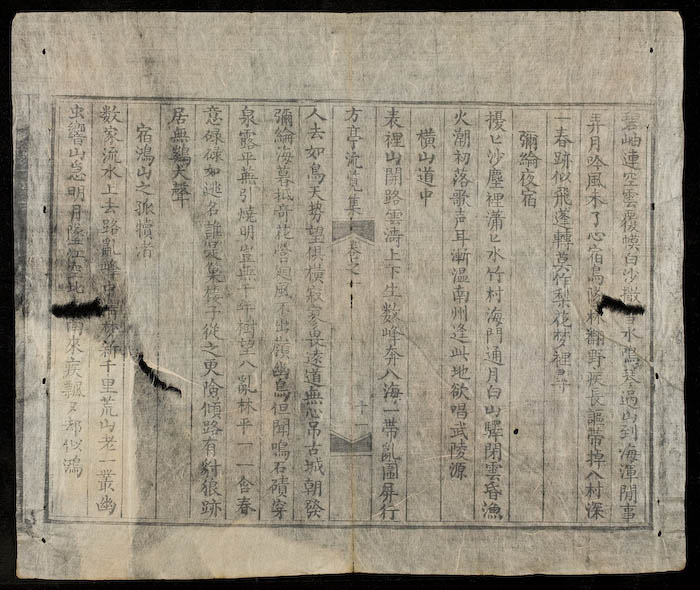 碧岫連空雲覆幙白沙撒水鳴琴過山到海渾閒事
弄月吟風未了心宿鳥隊林翻野疾長謳帶掉入村深
一春跡似飛蓬轉莫作梨花梦裡尋
彌綸夜宿
擾〻沙塵裡瀟〻水竹村海門通月白山驛閉雲昏漁
火潮初落歌声耳漸温南州逢此地欲唱武陵源
橫山道中
表裡山開路雲濤上下生数峰奔入海一帶亂圍屏行
方亭流覧集 卷之 十一
人去如鳥天勢望俱橫寂寥畏遠道無心吊古城朝發
彌綸海暮抵奇花營廻風不出嶺幽鳥但聞鳴石磧穿
泉露平無引燒明豈無千年樹望入亂林平一一含春
意碌碌如逃名誰是巢棲子從之更險傾路有豺狼跡
居無鷄犬聲
宿鴻山之孤犢渚
数家流水上去路亂峰中林新千里荒山老一叢幽
虫響山怱明月墮江空北南來疾飄〻却似鴻